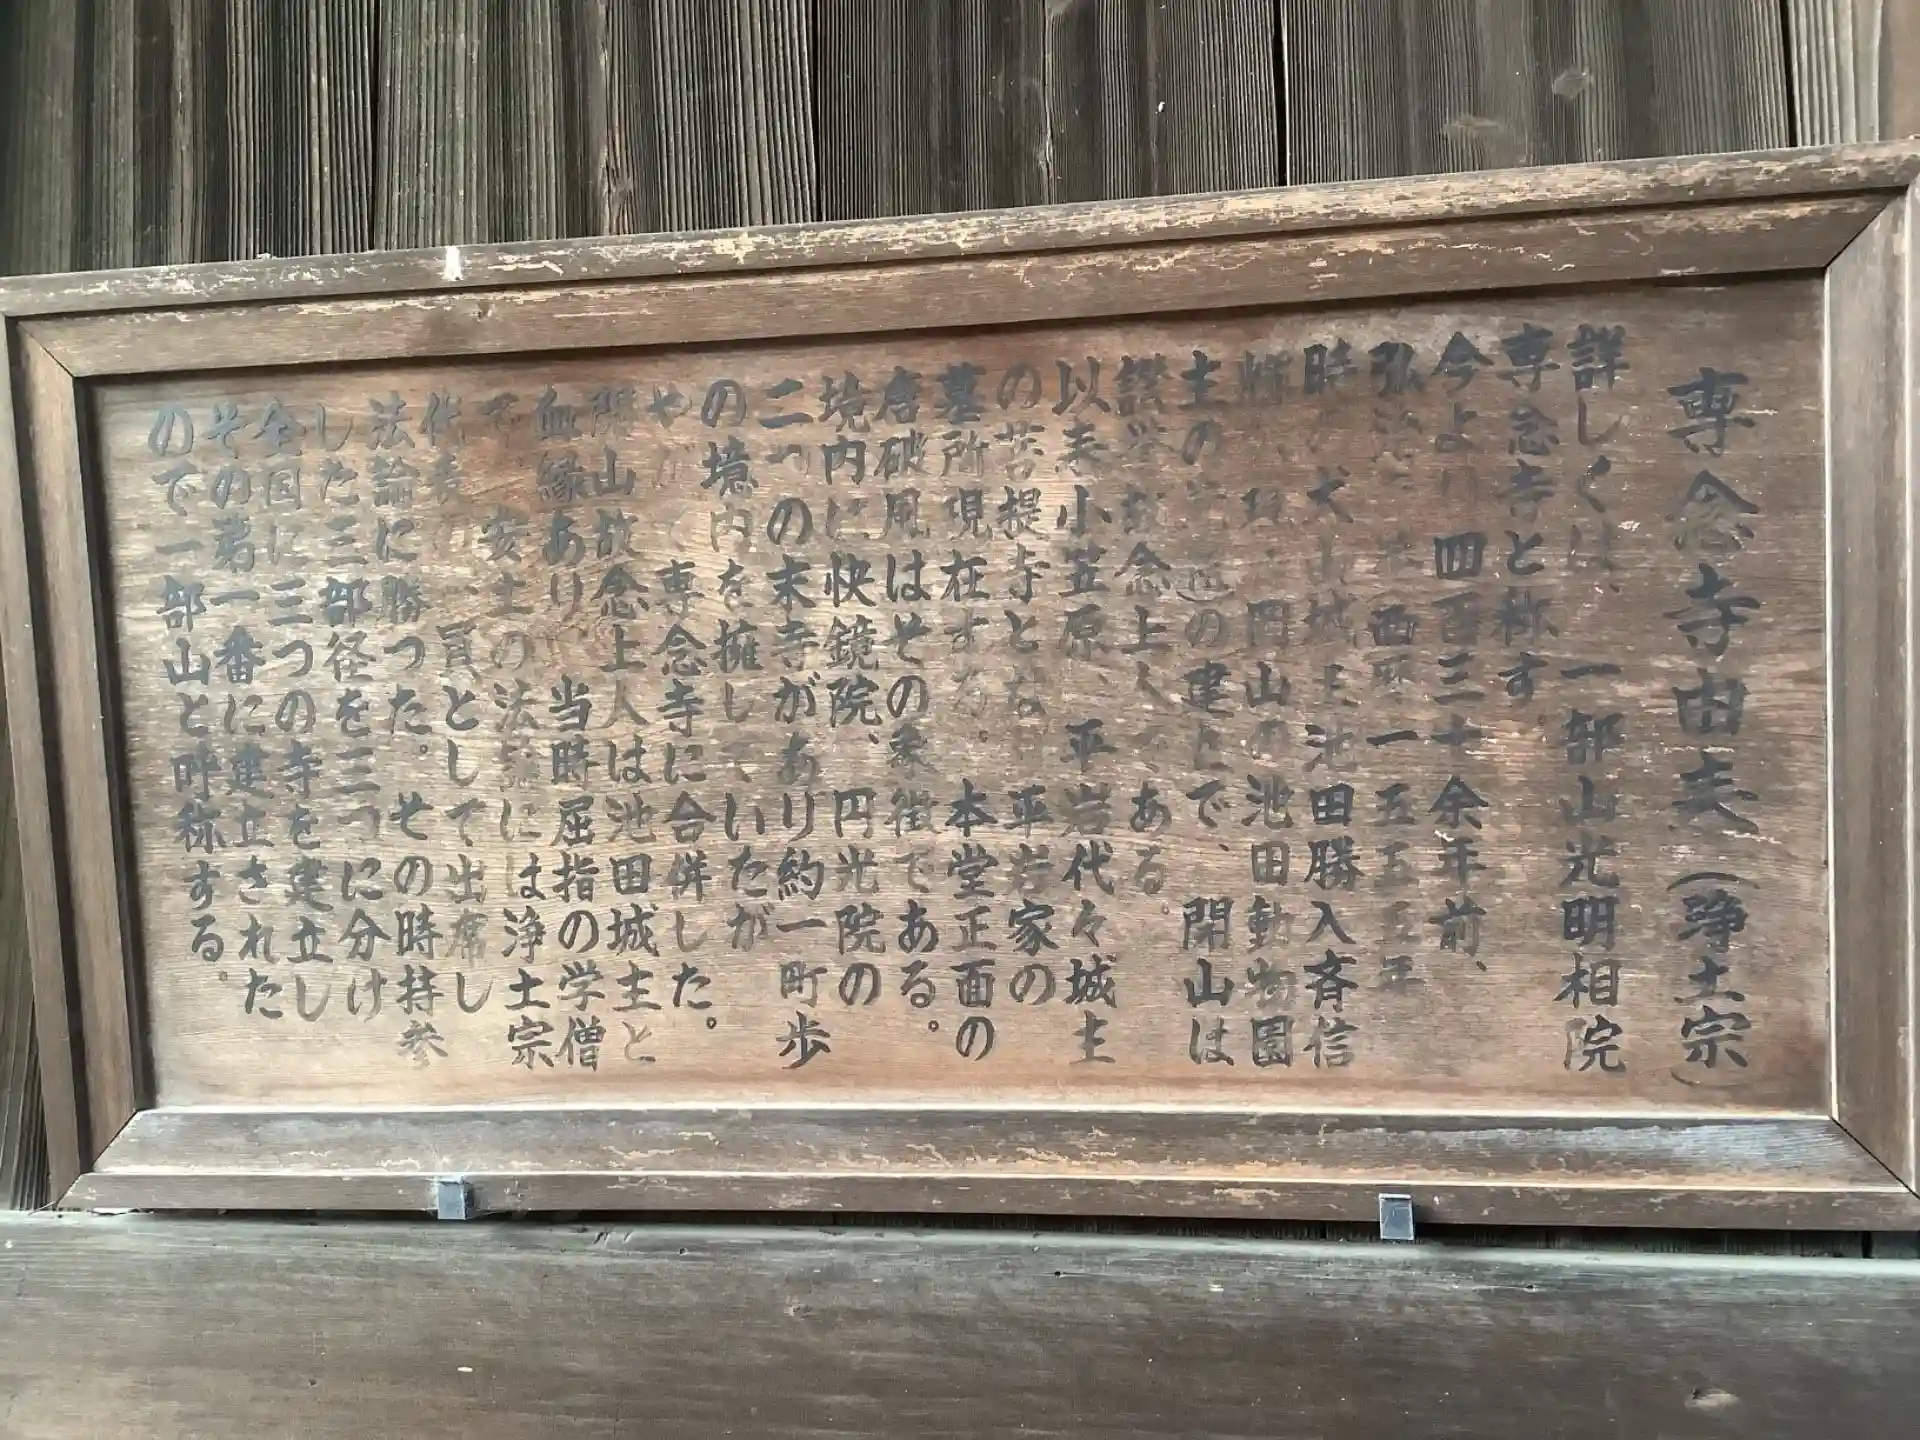 専念寺由来(浄土宗)
詳しくは、一部山光明相院
専念寺と称す。
今より四百三十余年前、
弘治元年西暦一五五五年
時の犬山城主池田勝入斉信
輝 現 岡山の池田動物園
主の の建立で、開山は
讃誉故念上人である。
以来小笠原、平岩代々城主
の菩提寺となり平岩家の
墓所現在する。本堂正面の
唐破風はその象徴である。
境内に快鏡院、円光院の
二つの末寺があり約一町歩
の境内を擁していたが
やがて専念寺に合併した。
開山故念上人は池田城主と
血縁あり、当時屈指の学僧
で、安土の法論には浄土宗
代表の一員として出席し
法論に勝つた。その時持参
した三部径を三つに分け
全国に三つの寺を建立し
その第一番に建立された
ので一部山と呼称する。